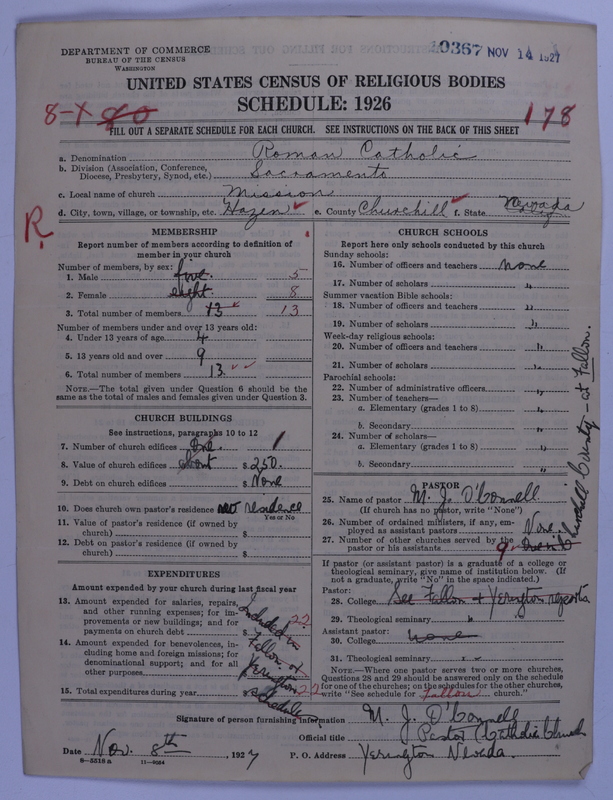 DEPARTMENT OF COMMERCE
BUREAU OF THE CENSUS
WASHINGTON
10367 NOV 14 1927
UNITED STATES CENSUS OF RELIGIOUS BODIES
SCHEDULE: 1926
8-X
178
FILL OUT A SEPARATE SCHEDULE FOR EACH CHURCH. SEE INSTRUCTIONS ON THE BACK OF THIS SHEET
a. Denomination Roman Catholic
b. Division (Association, Conference, Diocese, Presbytery, Synod, etc.) Sacramento
c. Local name of church Mission
d. City, town, village, or township, etc. Hazen e. County Churchill f. State Nevada
R.
MEMBERSHIP
Report number of members according to definition of
member in your church
Number of members, by sex:
1. Male five. 5
2. Female eight 8
3. Total number of members 13 13
Number of members under and over 13 years old:
4. Under 13 years of age 4
5. 13 years old and over 9
6. Total number of members 13
NOTE.—The total given under Question 6 should be the
same as the total of males and females given under Question 3.
CHURCH BUILDINGS
See instructions, paragraphs 10 to 12
7. Number of church edifices One. 1
8. Value of church edifices about $ 250.
9. Debt on church edifices $ None
10. Does church own pastor's residence no residence
Yes or No
11. Value of pastor's residence (if owned by
church) $
12. Debt on pastor's residence (if owned by
church) $
EXPENDITURES
Amount expended by your church during last fiscal year
13. Amount expended for salaries, repairs,
and other running expenses; for im-
provements or new buildings; and for
payments on church debt $
14. Amount expended for benevolences, in-
cluding home and foreign missions; for
denominational support; and for all
other purposes $
15. Total expenditures during year $
Included in
Fallon &
Yerington
schedule
22
22
CHURCH SCHOOLS
Report here only schools conducted by this church
Sunday schools:
16. Number of officers and teachers none
17. Number of scholars "
Summer vacation Bible schools:
18. Number of officers and teachers "
19. Number of scholars "
Week-day religious schools:
20. Number of officers and teachers "
21. Number of scholars "
Parochial schools:
22. Number of administrative officers "
23. Number of teachers—
a. Elementary (grades 1 to 8) "
b. Secondary "
24. Number of scholars—
a. Elementary (grades 1 to 8) "
b. Secondary "
PASTOR
25. Name of pastor M. J. O'Connell
(If church has no pastor, write "None")
26. Number of ordained ministers, if any, em-
ployed as assistant pastors None.
27. Number of other churches served by the
pastor or his assistants 9
Churchill County - at Fallon.
If pastor (or assistant pastor) is a graduate of a college or
theological seminary, give name of institution below. (If
not a graduate, write "No" in the space indicated.)
Pastor:
28. College See Fallon & Yerington reports
29. Theological seminary "
Assistant pastor:
30. College none
31. Theological seminary "
NOTE.—Where one pastor serves two or more churches,
Questions 28 and 29 should be answered only on the schedule
for one of the churches; on the schedules for the other churches,
write "See schedule for Fallon church."
Signature of person furnishing information M. J. O'Connell
Official title Pastor Catholic Church
Date Nov. 8th, 1927 P. O. Address Yerington Nevada.
8-5518 a 11-9084